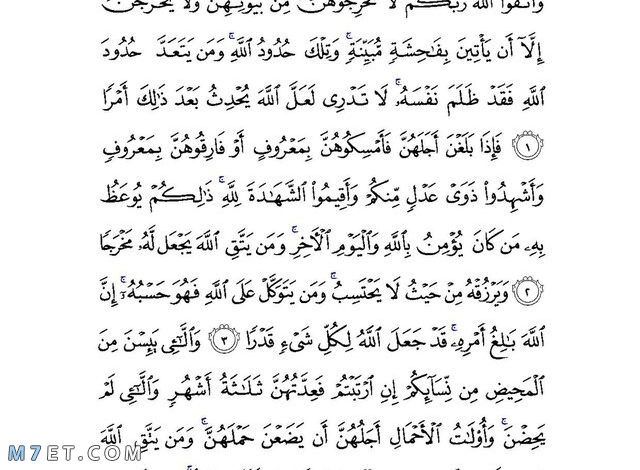 وَٱتَّقُوا۟ ٱللَّهَ رَبَّكُمْ لَا تُخْرِجُوهُنَّ مِنۢ بُيُوتِهِنَّ وَلَا يَخْرُجْنَ
إِلَّآ أَن يَأْتِينَ بِفَٰحِشَةٍ مُّبَيِّنَةٍ ۚ وَتِلْكَ حُدُودُ ٱللَّهِ ۚ وَمَن يَتَعَدَّ حُدُودَ
ٱللَّهِ فَقَدْ ظَلَمَ نَفْسَهُۥ ۚ لَا تَدْرِى لَعَلَّ ٱللَّهَ يُحْدِثُ بَعْدَ ذَٰلِكَ أَمْرًا
١ فَإِذَا بَلَغْنَ أَجَلَهُنَّ فَأَمْسِكُوهُنَّ بِمَعْرُوفٍ أَوْ فَارِقُوهُنَّ بِمَعْرُوفٍ
وَأَشْهِدُوا۟ ذَوَىْ عَدْلٍ مِّنكُمْ وَأَقِيمُوا۟ ٱلشَّهَٰدَةَ لِلَّهِ ۚ ذَٰلِكُمْ يُوعَظُ
بِهِۦ مَن كَانَ يُؤْمِنُ بِٱللَّهِ وَٱلْيَوْمِ ٱلْءَاخِرِ ۚ وَمَن يَتَّقِ ٱللَّهَ يَجْعَل لَّهُۥ مَخْرَجًا
٢ وَيَرْزُقْهُ مِنْ حَيْثُ لَا يَحْتَسِبُ ۚ وَمَن يَتَوَكَّلْ عَلَى ٱللَّهِ فَهُوَ حَسْبُهُۥٓ ۚ إِنَّ
ٱللَّهَ بَٰلِغُ أَمْرِهِۦ ۚ قَدْ جَعَلَ ٱللَّهُ لِكُلِّ شَىْءٍ قَدْرًا ٣ وَٱلَّٰٓـِٔى يَئِسْنَ مِنَ
ٱلْمَحِيضِ مِن نِّسَآئِكُمْ إِنِ ٱرْتَبْتُمْ فَعِدَّتُهُنَّ ثَلَٰثَةُ أَشْهُرٍ وَٱلَّٰٓـِٔى لَمْ
يَحِضْنَ ۚ وَأُو۟لَٰتُ ٱلْأَحْمَالِ أَجَلُهُنَّ أَن يَضَعْنَ حَمْلَهُنَّ ۚ وَمَن يَتَّقِ ٱللَّهَ
M7ET.COM